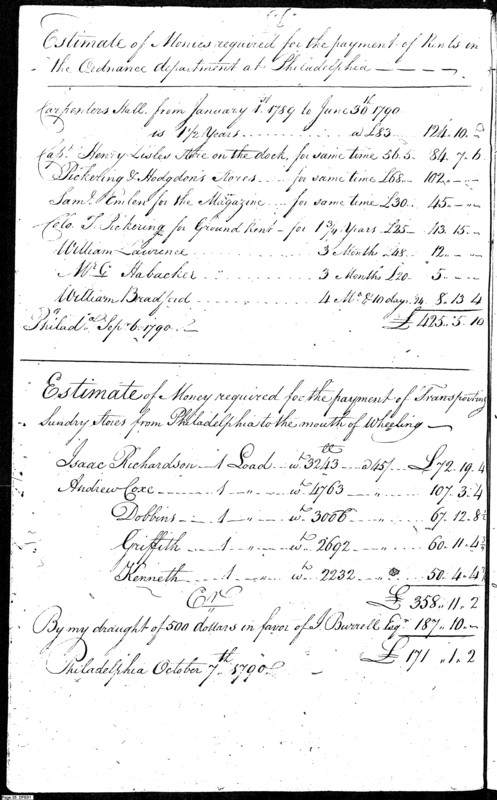 Estimate of Monies required for the payment of Rents in
the Ordnance department at Philadelphia
Carpenters Hall, from January 1st 1789 to June 30th 1790
is 1 1/2 Years a £83 124.10.
Capt. Henry Lisles Store on the dock, for same time 56.5 84.7.6
Pickering & Hodgdon's Stores for same time £68 102.
Saml. Emlen for the Magazine for same time £30 45.
Colo. T. Pickering for Ground Rent for 1 3/4 Years £25 43.15
William Lawrence 3 Months £48 12
Mr. G Habacker 3 Months £20 5
William Bradford 4 Mo. & 10 days 24 8.13.4
Philada. Sepr. 6. 1790 £425.5.10
Estimate of Money required for the payment of Transporting
Sundry Stores from Philadelphia to the mouth of Wheeling
Isaac Richardson 1 Load wt. 3243 lb a 45/ £72.19.4
Andrew Coxe 1 " wt. 4763 " 107.3.4
Dobbins 1 " wt. 3006 " 67.12.8
Griffith 1 " wt. 2692 " 60.11.4
Kenneth 1 " wt. 2232 " 50.4.4
Cr £358.11.2
By my draught of 500 dollars in favor of J Burrell Esqr. 187.10
£171.1.2
Philadelphia October 7th 1790